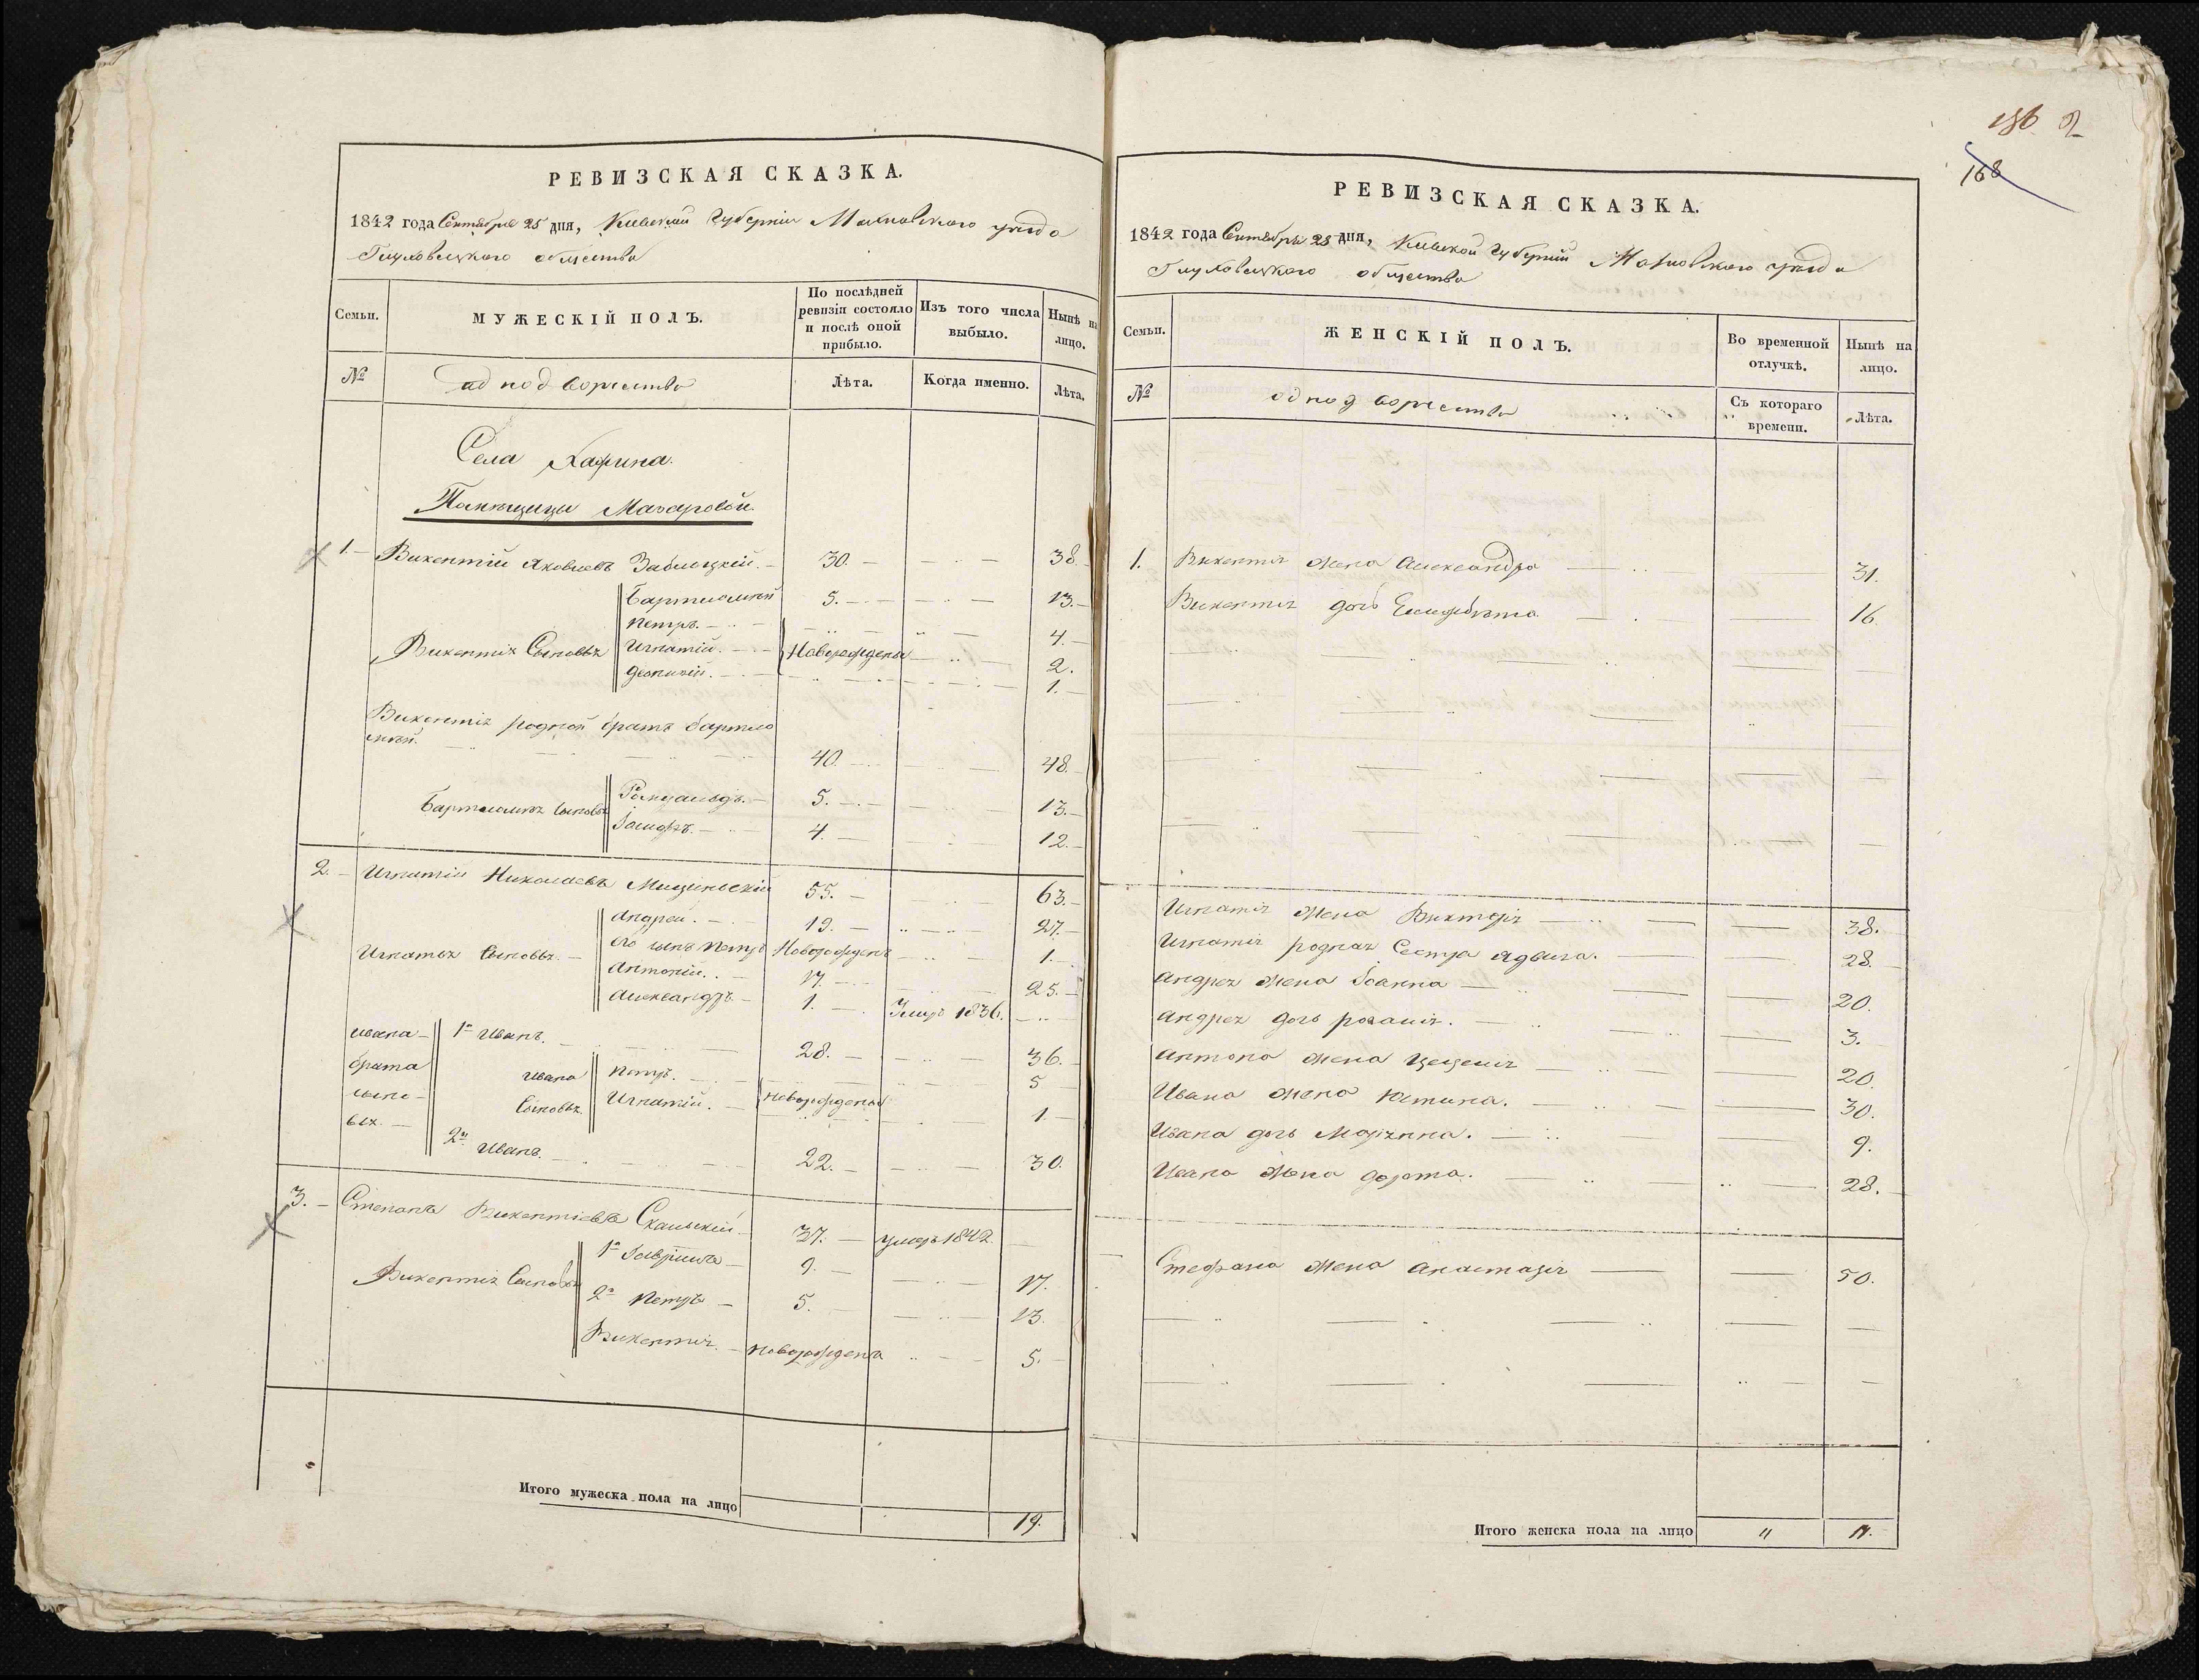 РЕВИЗСКАЯ СКАЗКА.
1842 года Сентября 25 дня, Киевской Губерніи Махновского уезда
Глуховецкого общества
Семьи. МУЖЕСКІЙ ПОЛЪ. По послѣдней ревизіи состояло и послѣ оной прибыло. Изъ того числа выбыло. Нынѣ на лицо.
№ однодворчества Лѣта. Когда именно. Лѣта.
Села
Помещицы
1. Викентій Яковлевъ Заблоцкій. 30. 38.
Бартломей 5. 13.
Петръ. 4.
Викентія Сыновья Игнатій. Новорождены 2.
1.
Викентія родной братъ Бартло
мей. 40. 48.
Бартломея сыновья Ромуальдъ. 5. 13.
Іосифъ. 4. 12.
2. Игнатій Николаевъ 55. 63.
Андрей. 19. 27.
его сынъ Петръ Новорожденъ 1.
Игнатья Сыновья. Антоній. 17. 25.
Александръ. 1. Умеръ 1836.
Ивана 1й Иванъ. 28. 36.
брата Ивана Петръ. 5
сыно- Сыновья Игнатій. Новорождены 1.
вья. 2й Иванъ. 22. 30.
3. Степанъ Викентіевъ Скальскій 37. умеръ 1842.
1й Гавріилъ 9. 17.
Викентія Сыновья 2й Петръ 5. 13.
Викентій. новорожденъ 5.
Итого мужеска пола на лицо 19.
156 2
168
РЕВИЗСКАЯ СКАЗКА.
1842 года Сентября 25 дня, Киевской Губерніи Махновского уезда
Глуховецкого общества
Семьи. ЖЕНСКІЙ ПОЛЪ. Во временной отлучкѣ. Нынѣ на лицо.
№ однодворчества Съ котораго времени. Лѣта.
1. Викентія жена Александра 31.
Викентія дочь Елисавѣта 16.
Игнатія жена Викторія 38.
Игнатія родная Сестра Ядвига. 28.
Андрея жена Іоанна 20.
Андрея дочь Розалія. 3.
Антона жена Цецелія 20.
Ивана жена Юстина. 30.
Ивана дочь Маріянна. 9.
Ивана жена Дорота. 28.
Стефана жена Анастазія 50.
Итого женска пола на лицо " 11.